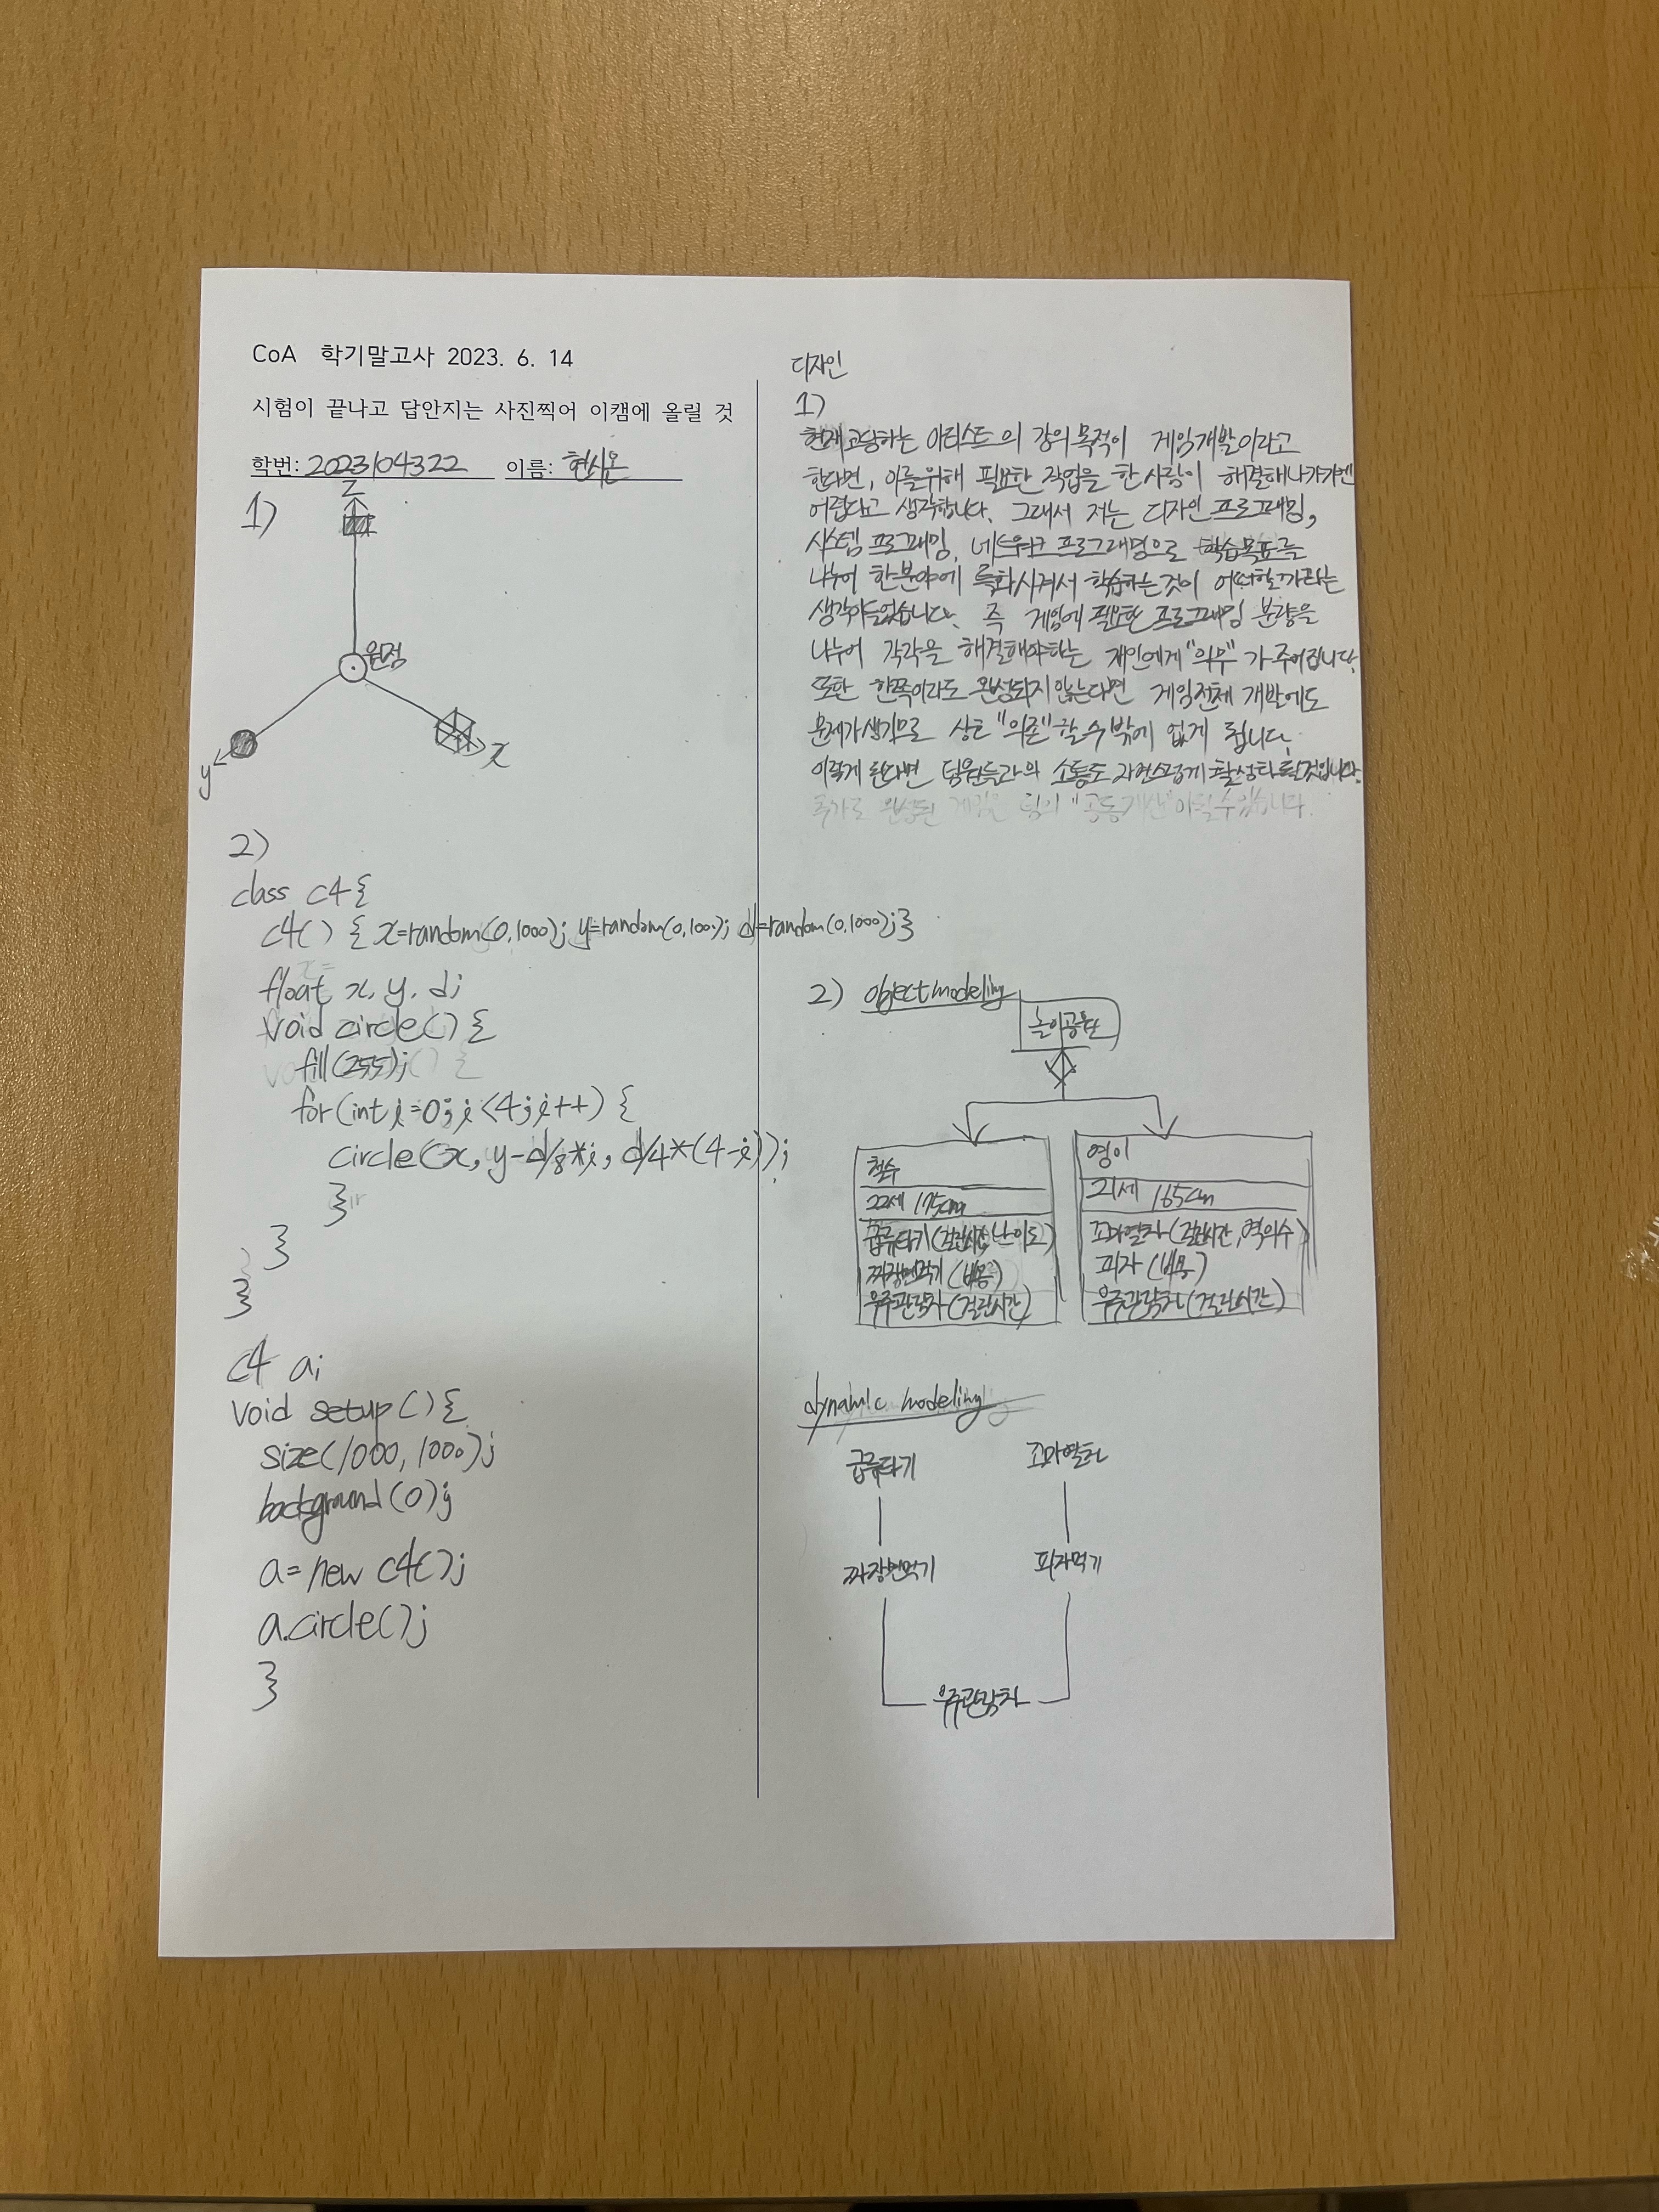 CoA 학기말고사 2023. 6. 14
시험이 끝나고 답안지는 사진찍어 이캠에 올릴 것
학번: 2023104322 이름: 현시온
1)
z
원점
y
x
2)
class c4 {
c4() { x=random(0,1000); y=random(0,1000); d=random(0,1000);}
float x, y, d;
void circle() {
fill(255);
for(int i=0; i<4; i++) {
circle(x, y-d/8*i, d/4*(4-i));
}
}
}
c4 a;
void setup() {
size(1000, 1000);
background(0);
a= new c4();
a.circle();
}
디자인
1)
현재 코딩하는 아티스트의 강의목적이 게임개발이라고
한다면, 이를위해 필요한 작업을 한 사람이 해결해나가기엔
어렵다고 생각합니다. 그래서 저는 디자인 프로그래밍,
시스템 프로그래밍, 네트워크 프로그래밍으로 학습목표를
나누어 한분야에 특화시켜서 학습하는것이 어떠할까라는
생각이들었습니다. 즉 게임에 필요한 프로그래밍 분량을
나누어 각각을 해결해야하는 개인에게 "의무"가 주어집니다.
또한 한쪽이라도 완성되지 않는다면 게임전체 개발에도
문제가생기므로 상호 "의존"할수밖에 없게 됩니다.
이렇게 한다면 팀원들과의 소통도 자연스럽게 활성화 될것입니다.
추가로 완성된 게임은 팀의 "공동재산"이될수있습니다.
2) object modeling
놀이공원
철수
22세 175cm
급류타기(걸린시간, 난이도)
짜장면먹기(비용)
우주관람차(걸린시간)
영이
21세 165cm
꼬마열차(걸린시간, 역의수)
피자(비용)
우주관람차(걸린시간)
dynamic modeling
급류타기
꼬마열차
짜장면먹기
피자먹기
우주관람차